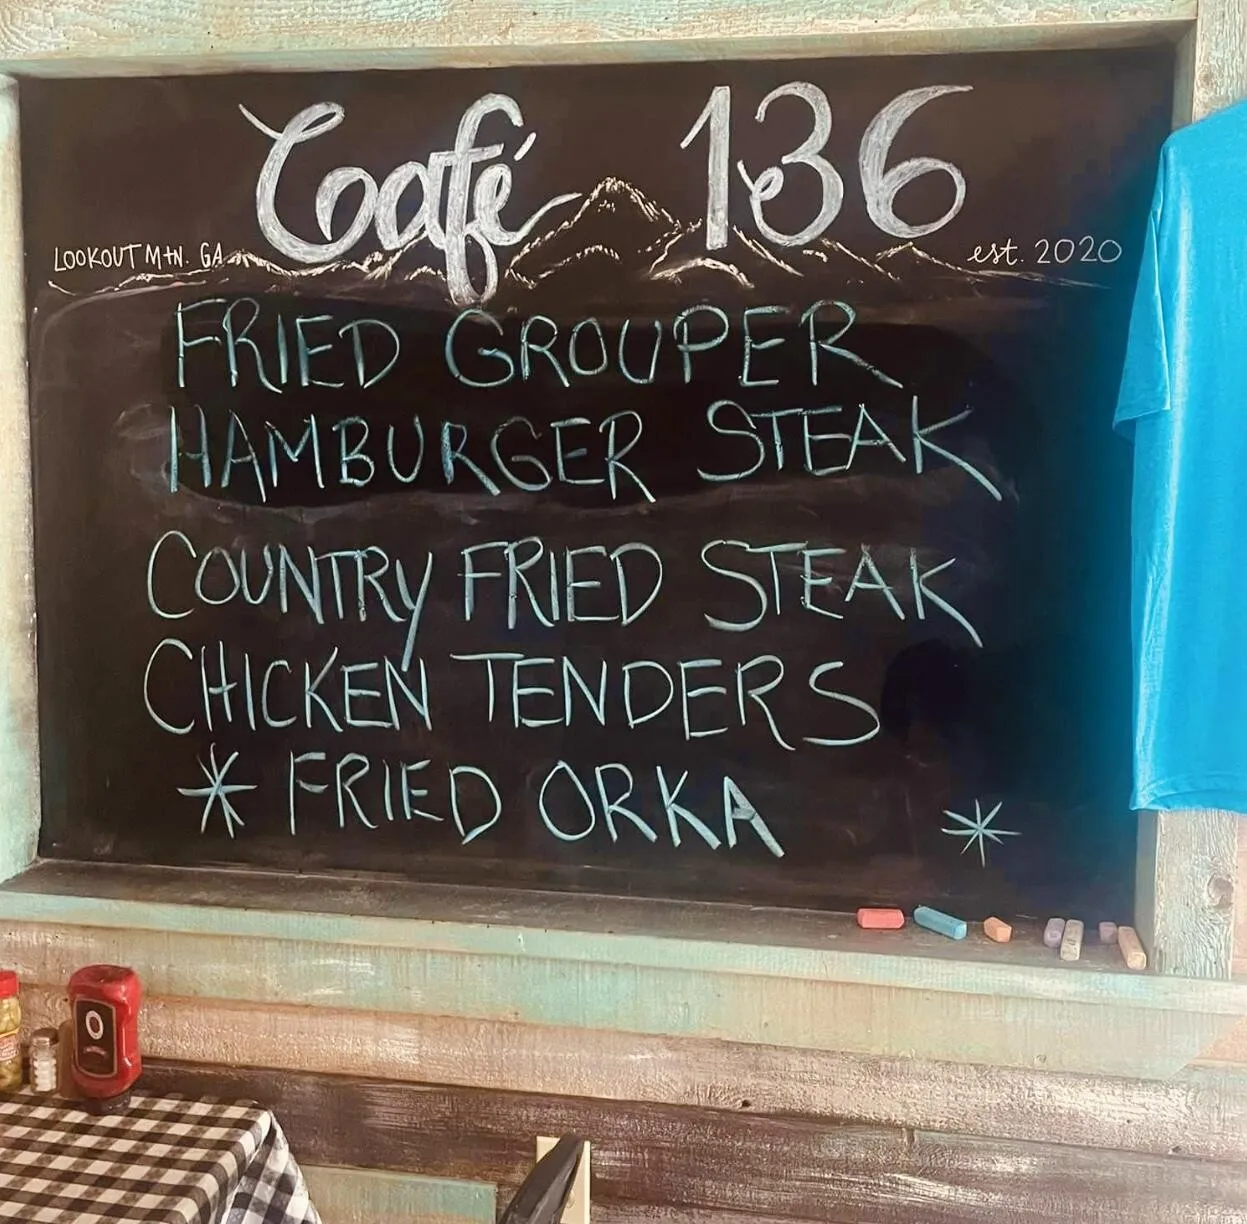 Café 136
LOOKOUT MTN. GA
est. 2020
FRIED GROUPER
HAMBURGER STEAK
COUNTRY FRIED STEAK
CHICKEN TENDERS
* FRIED ORKA *